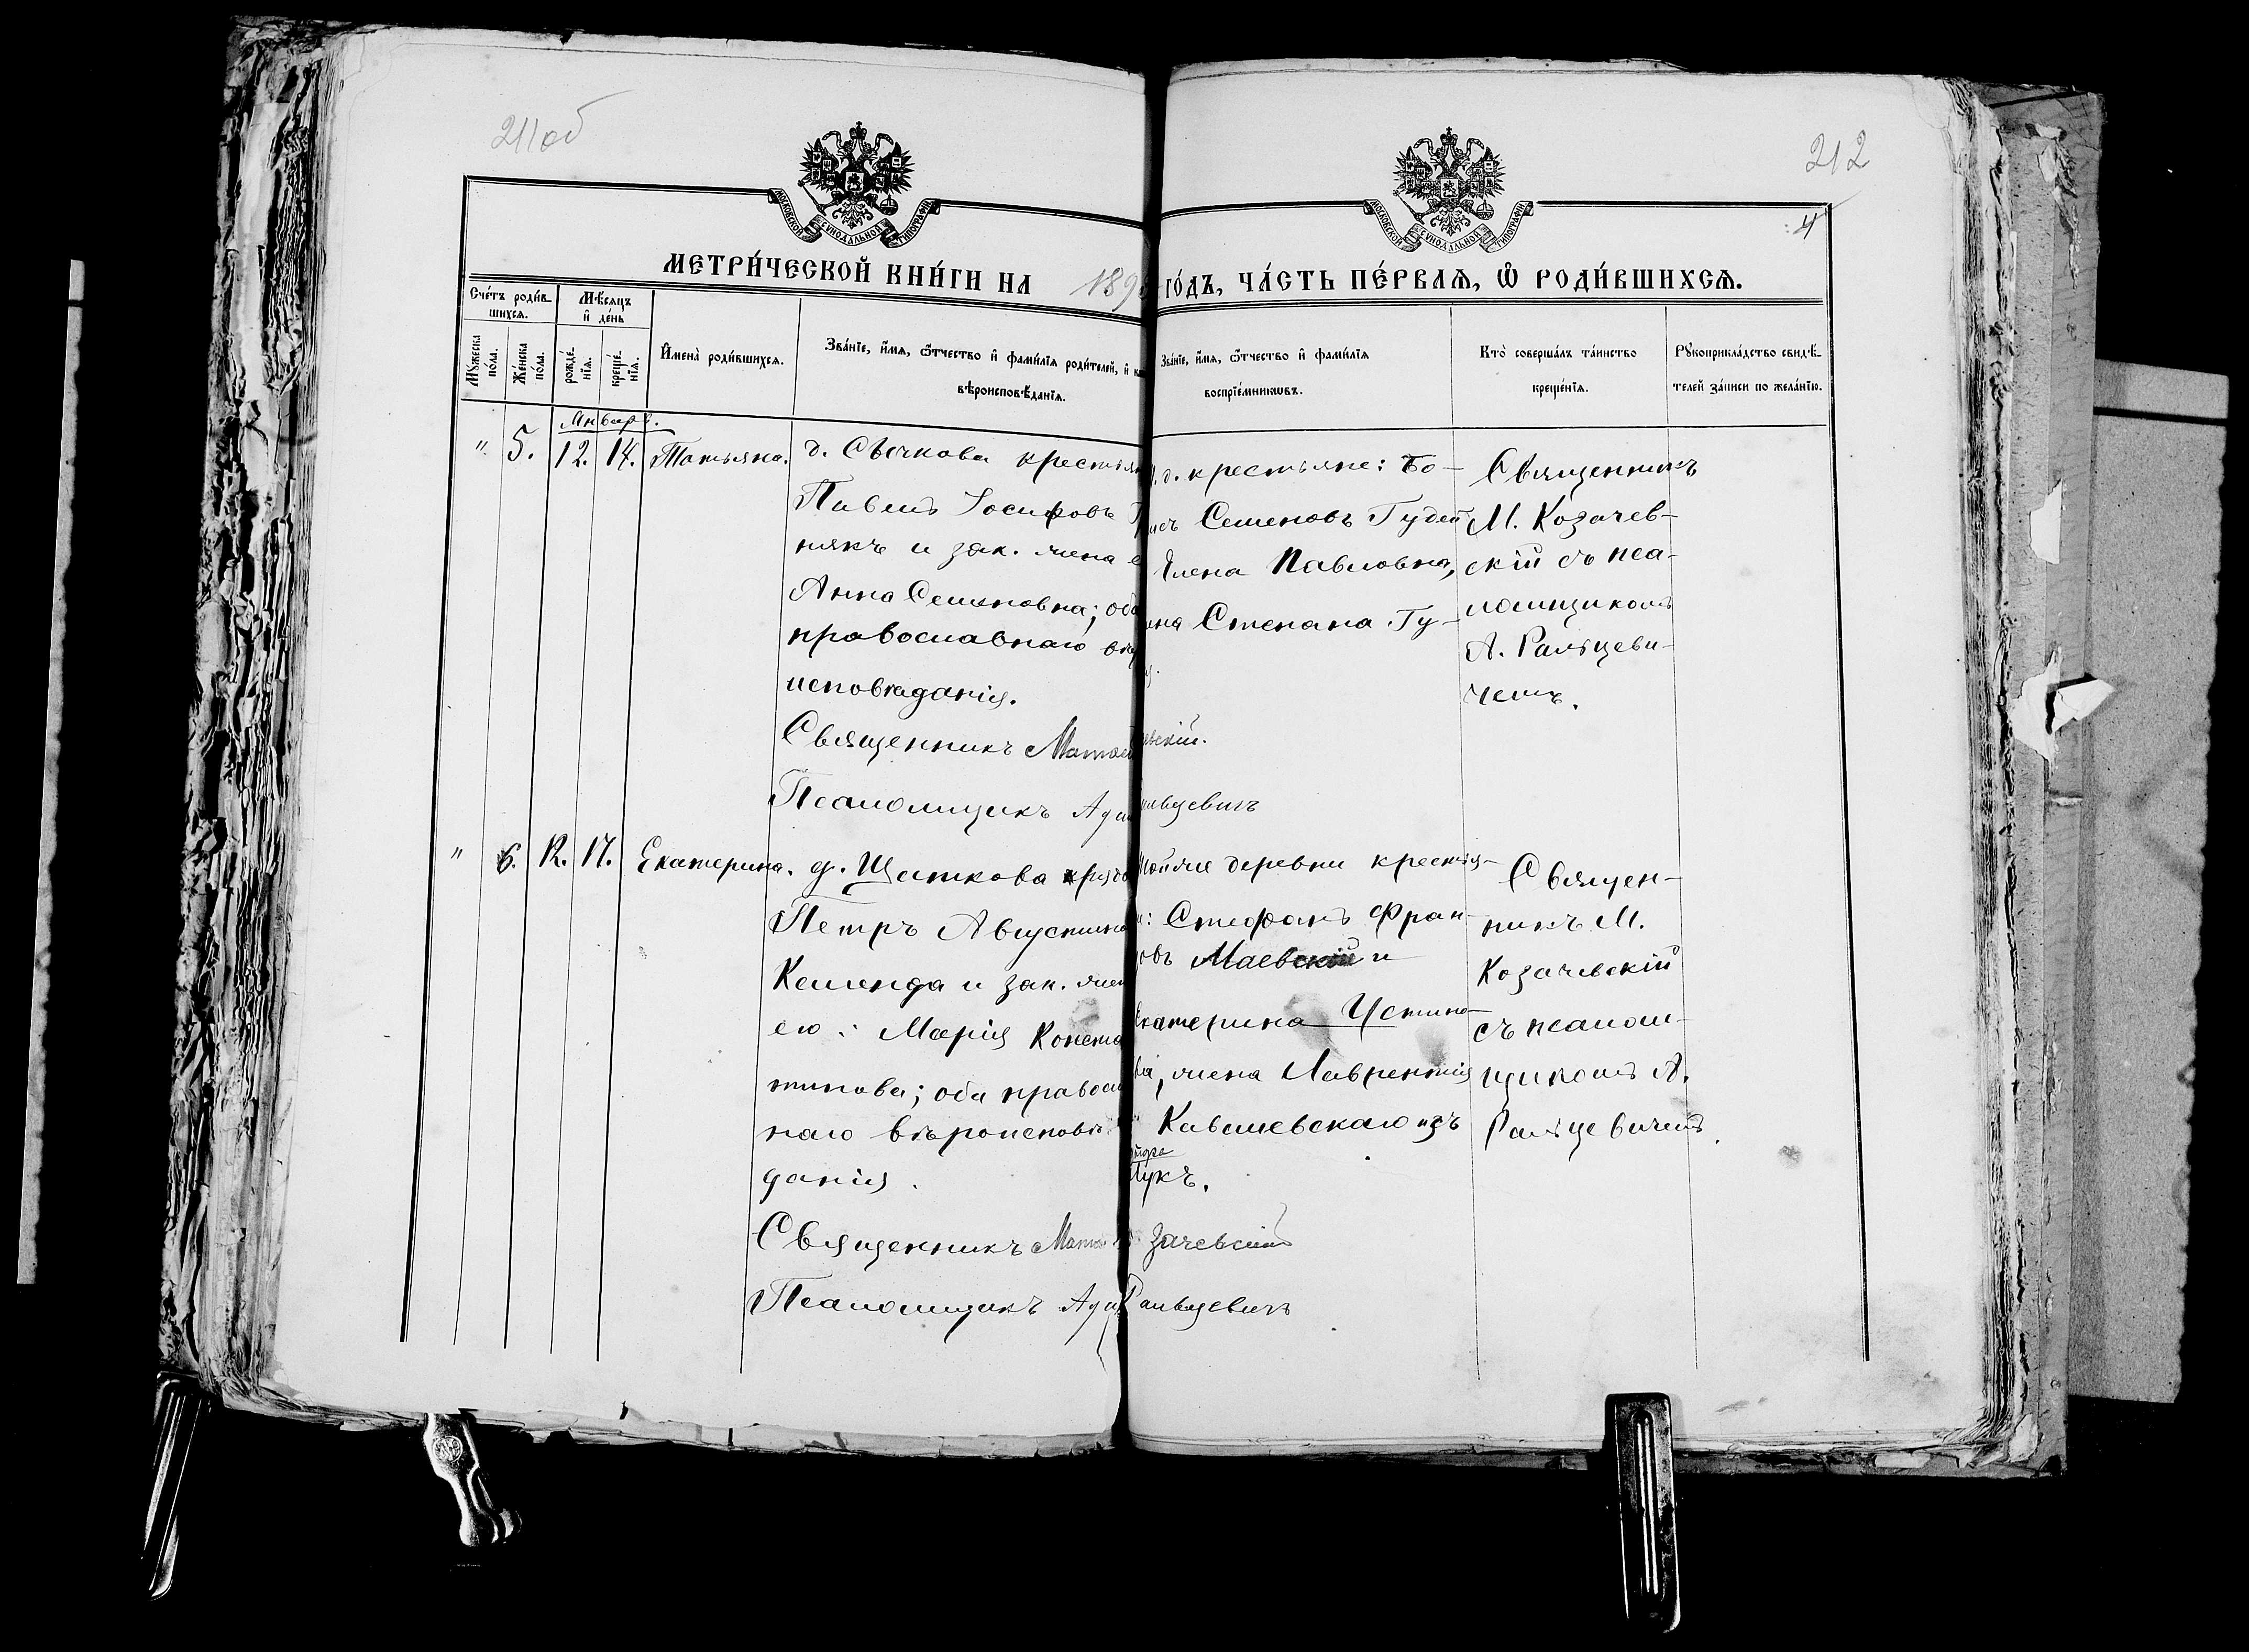 211об
212
4
МОСКОВСКОЙ СѴНОДАЛЬНОЙ ТИПОГРАФІИ
МОСКОВСКОЙ СѴНОДАЛЬНОЙ ТИПОГРАФІИ
МЕТРИ́ЧЕСКОЙ КНИ́ГИ НА 189
ГО́ДЪ, ЧА́СТЬ ПЕ́РВАѦ, Ѡ҆ РОДИ́ВШИХСѦ.
Сче́тъ роди́в-
шихсѧ.
Мꙋ́жеска
по́ла.
Же́нска
по́ла.
Мѣ́сѧцъ
и҆ де́нь
рожде́-
нїѧ.
креще́-
нїѧ.
И҆мена̀ роди́вшихсѧ.
Зва́нїе, и҆́мѧ, ѻ҆́тчество и҆ фами́лїѧ роди́телей, и҆
вѣроисповѣ́данїѧ.
Зва́нїе, и҆́мѧ, ѻ҆́тчество и҆ фами́лїѧ
воспрїе́мникѡвъ.
Кто̀ соверша́лъ та́инство
креще́нїѧ.
Рꙋкоприкла́дство свидѣ́-
телей за́писи по жела́нїю.
Январь.
" 5. 12. 14. Татьяна.
д. Сычкова крестьян
Павелъ Іосифовъ
някъ и зак. жена е
Анна Семеновна; оба
православнаго вѣр
исповѣданія.
Священникъ Матвей
Псаломщикъ Ада
д. крестьяне: Бо-
исъ Семеновъ Гудей
Елена Павловна,
ена Степана Гу-
Священникъ
М. Козачев-
скій съ пса-
ломщикомъ
А. Ральцеви-
чемъ.
евскій.
альцевичъ
" 6. 12. 17. Екатерина.
д. Щаткова крест
Петръ Августино
Кеменда и зак. жен
его: Марія Конста
тинова; оба правосл
наго вѣроисповѣ-
данія.
Священникъ Матв
Псаломщикъ Ада
Тойже деревни крестья-
е: Стефанъ Фран-
овъ Маевскій и
Екатерина Устино-
ва, жена Лаврентія
Кавшевскаго изъ
укъ.
Священ-
никъ М.
Козачевскій
съ псалом-
щикомъ А.
Ральцевичемъ.
зачевскій
Ральцевичъ